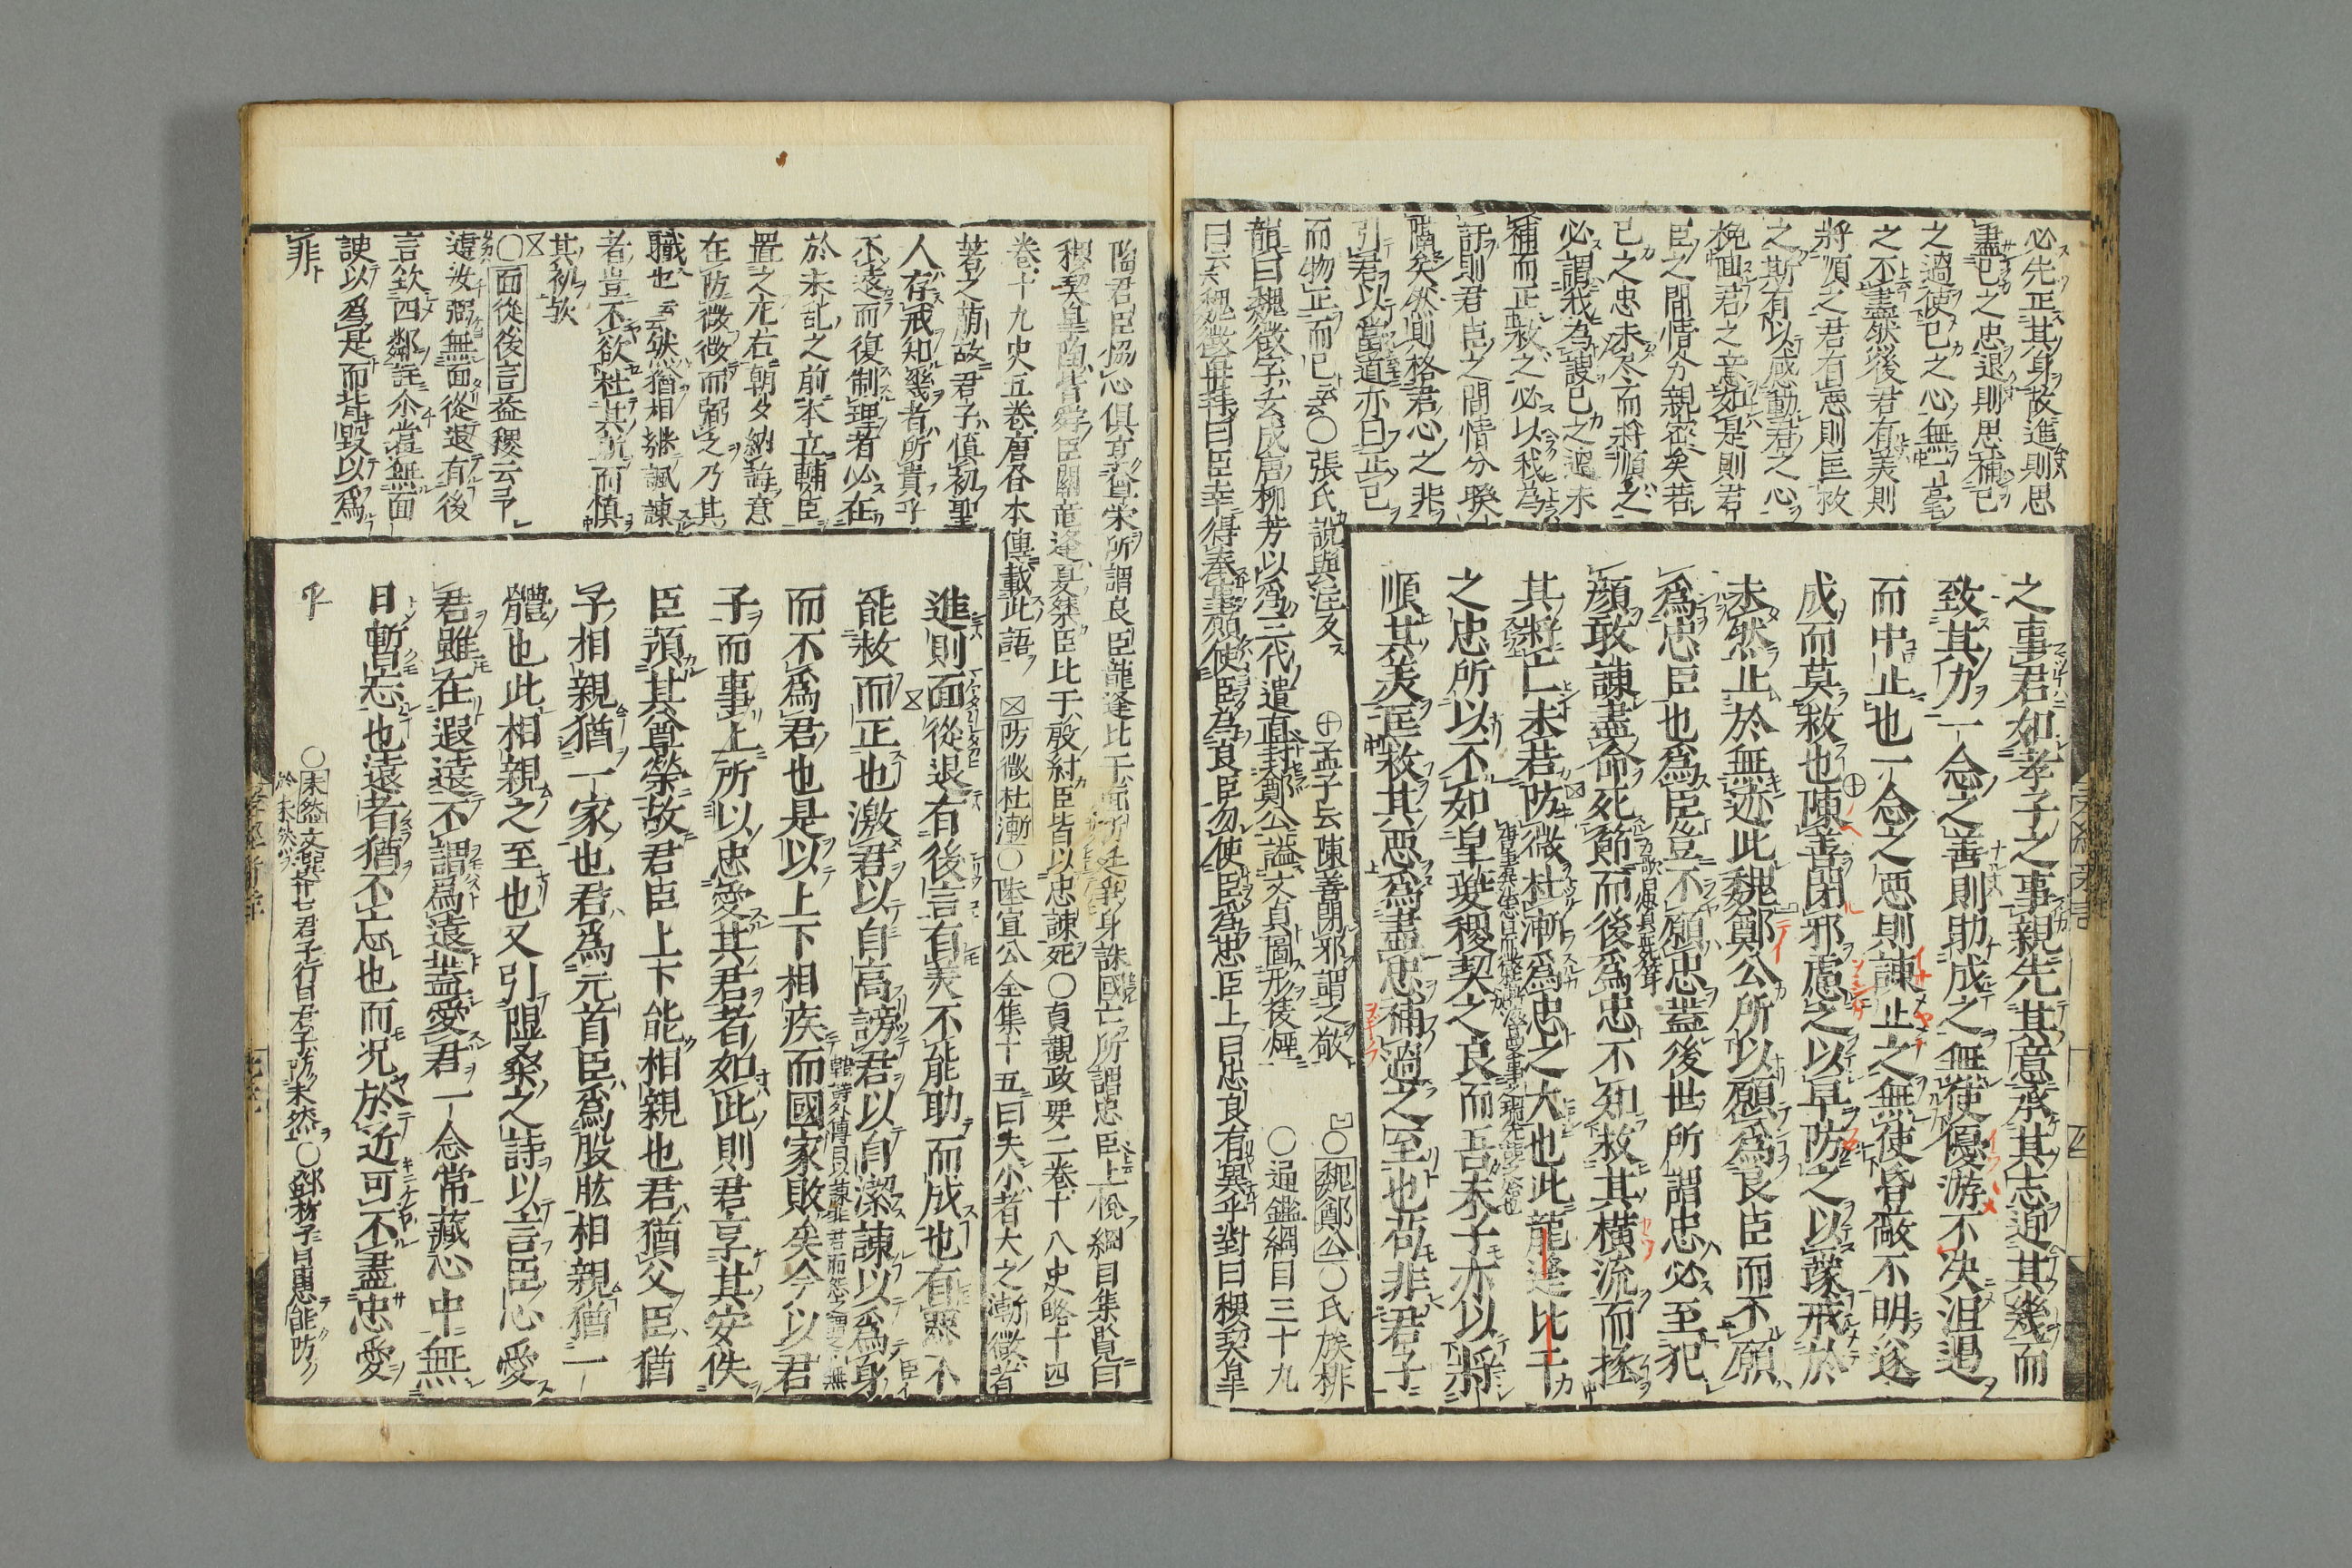 必先正其身故進則思
盡己之忠退則思補己
之過使己之心無一毫
之不盡然後君有美則
將順之君有惡則匡救
之斯有以感動君之心
挽回君之意如是則君
臣之間情分親密矣若
己之忠未尽而將順之
必謂我為諛己之過未
補而正救之必以我為
訐則君臣之間情分暌
隔矣然則格君心之非
引君以當道亦曰正己
而物正而已云云〇張氏說與注反
韻曰魏徵字玄成唐柳芳以為三代遺直封鄭公謚文貞圖形凌煙
曰云云魏徵再拜曰臣幸得奉事願使臣為良臣勿使臣為忠臣上曰忠良有異乎對曰稷契皐
孟子云陳善閉邪謂之敬
〇魏鄭公〇氏族排
〇通鑑綱目三十九
之事君如孝子之事親先其意承其志迎其幾而
致其力一念之善則助成之無使優游不决沮遏
而中止也一念之惡則諫止之無使昏蔽不明遂
成而莫救也陳善閉邪慮之以早防之以豫戒於
未然止於無迹此魏鄭公所以願為良臣而不願
為忠臣也為臣豈不願忠蓋後世所謂忠必至犯
顏敢諫盡命死節而後為忠不知救其橫流而拯
其將亡未若防微杜漸為忠之大也此龍逢比干
之忠所以不如皐夔稷契之良而吾夫子亦以將
順其美匡救其惡為盡忠補過之至也苟非君子
陶君臣恊心俱享尊栄所謂良臣龍逢比干面折廷爭身誅國亡所謂忠臣上悅綱目集覧曰
稷契皐陶皆舜臣關竜逢夏桀臣比干殷紂臣皆以忠諫死〇貞觀政要二卷十八史略十四
卷十九史五卷唐各本傳載此語
防微杜漸〇陸宣公全集十五曰夫小者大之漸微者
著之萠故君子慎初聖
人存戒知幾者所貴乎
不遠而復制理者必在
於未乱之前本立輔臣
置之左右朝夕納誨意
在防微微而弼之乃其
職也云云然猶相継諷諫
者豈不欲杜其漸而慎
其初欤
〇面從後言益稷云予
違汝弼無面從退有後
言欽四鄰註尒當無面
諛以為是而背毀以為
非
進則面從退有後言有美不能助而成也有惡不
能救而正也激君以自高謗君以自潔諫以為身
而不為君也是以上下相疾而國家敗矣今以君
子而事上所以忠愛其君者如此則君享其安佚
臣預其尊榮故君臣上下能相親也君猶父臣猶
子相親猶一家也君為元首臣為股肱相親猶一
體也此相親之至也又引隰桑之詩以言臣心愛
君雖在遐遠不謂為遠蓋愛君一念常藏心中無
日暫忘也遠者猶不忘也而况於近可不盡忠愛
乎
〇未然文選廿七君子行曰君子防未然〇鄒
於未然